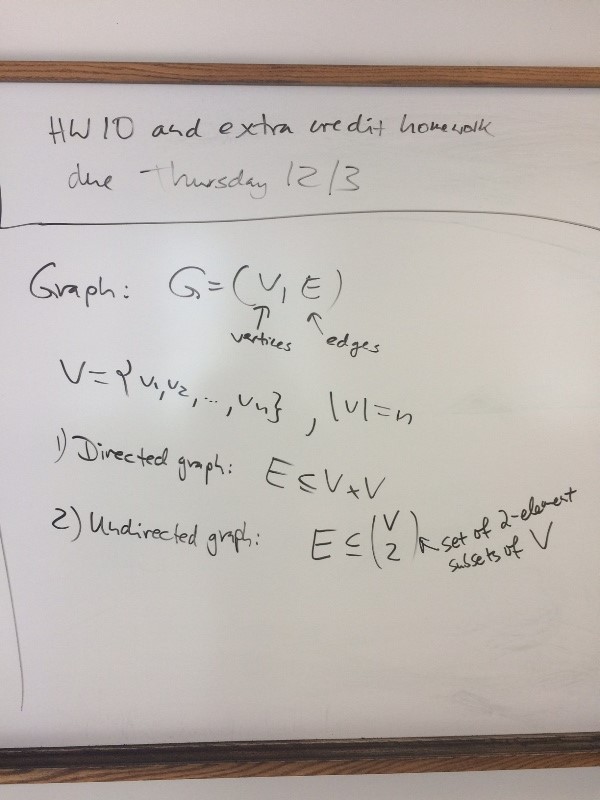 HW 10 and extra credit homework
due Thursday 12/3
Graph: G = (V, E)
vertices edges
V = {v₁, v₂, ..., vₙ}, |V| = n
1) Directed graph: E ⊆ V × V
2) Undirected graph: E ⊆ (V 2) ↖ set of 2-element
subsets of V